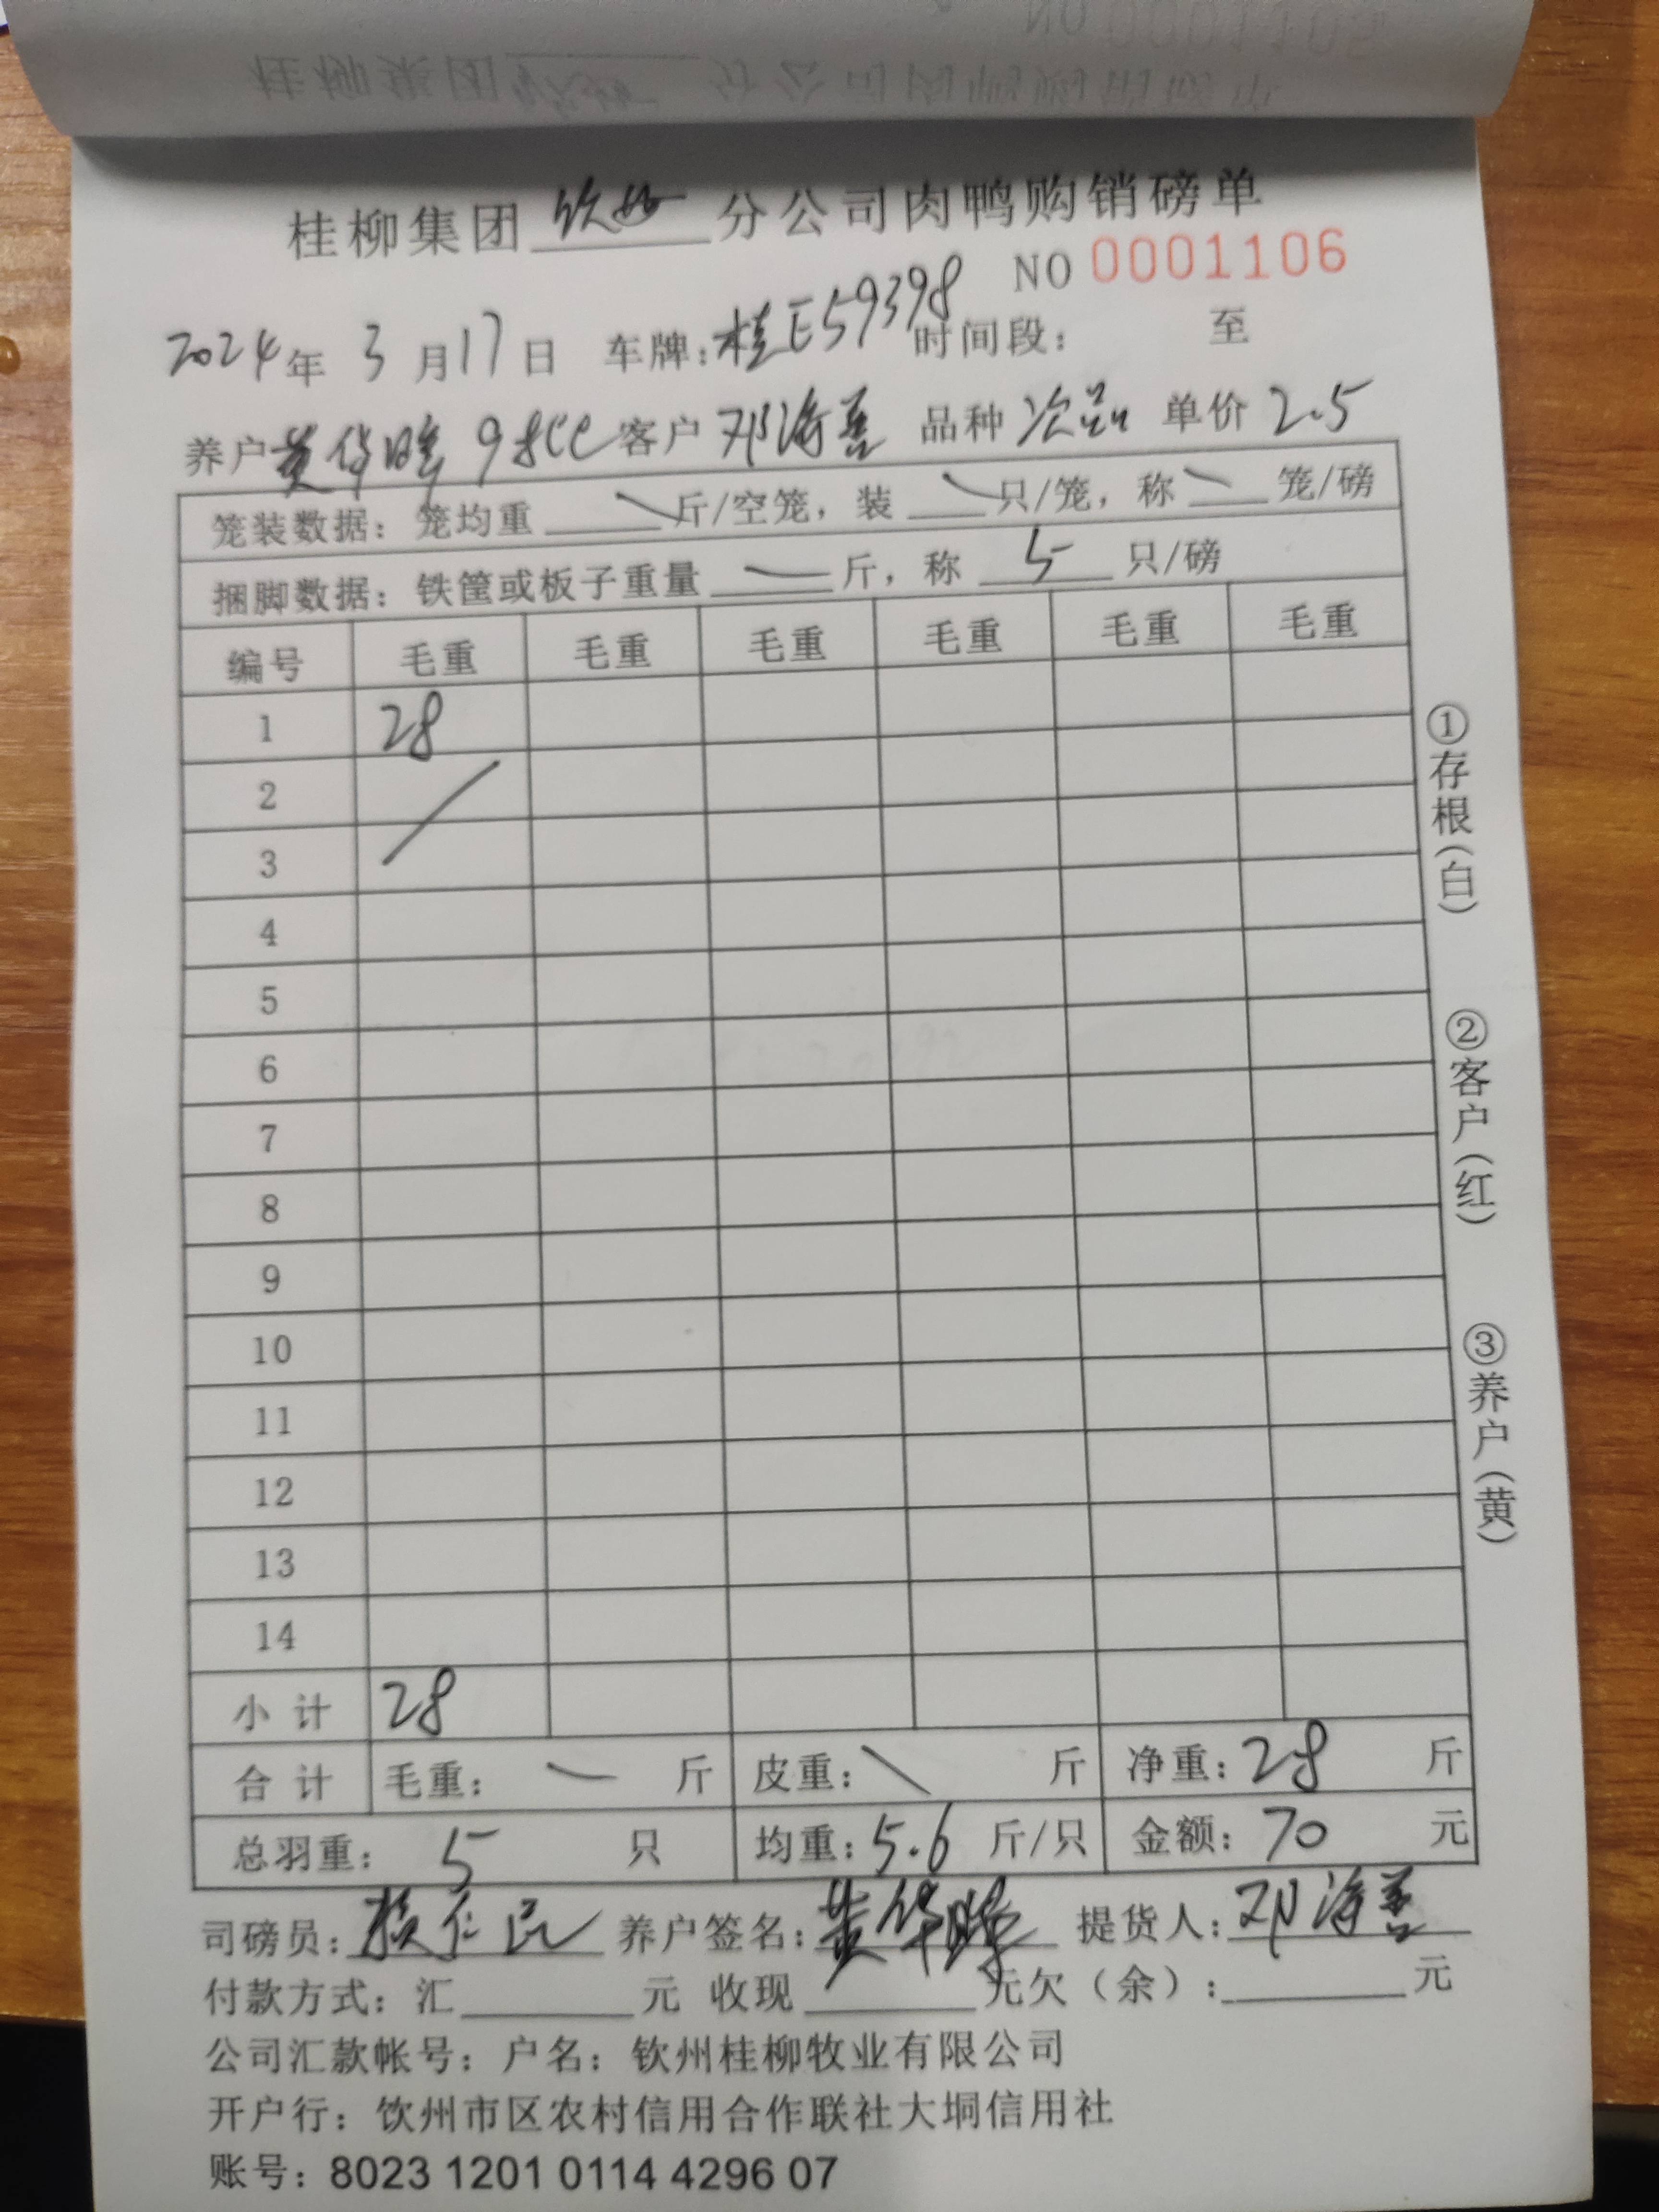 桂柳集团 钦州 分公司肉鸭购销磅单
NO 0001106
2024年 3月17日 车牌:桂E59398 时间段: 至
养户 黄华 客户 邓海善 品种 次品 单价 2.5
笼装数据: 笼均重 斤/空笼, 装 只/笼, 称 笼/磅
捆脚数据: 铁筐或板子重量 — 斤, 称 5 只/磅
编号 毛重 毛重 毛重 毛重 毛重 毛重
1 28
2
3
4
5
6
7
8
9
10
11
12
13
14
小计 28
合计 毛重: — 斤 皮重: \ 斤 净重: 28 斤
总羽重: 5 只 均重: 5.6 斤/只 金额: 70 元
司磅员: 养户签名: 黄华 提货人: 邓海善
付款方式: 汇 元 收现 元欠(余): 元
公司汇款帐号: 户名: 钦州桂柳牧业有限公司
开户行: 钦州市区农村信用合作联社大垌信用社
账号: 8023 1201 0114 4296 07
①存根(白)
②客户(红)
③养户(黄)